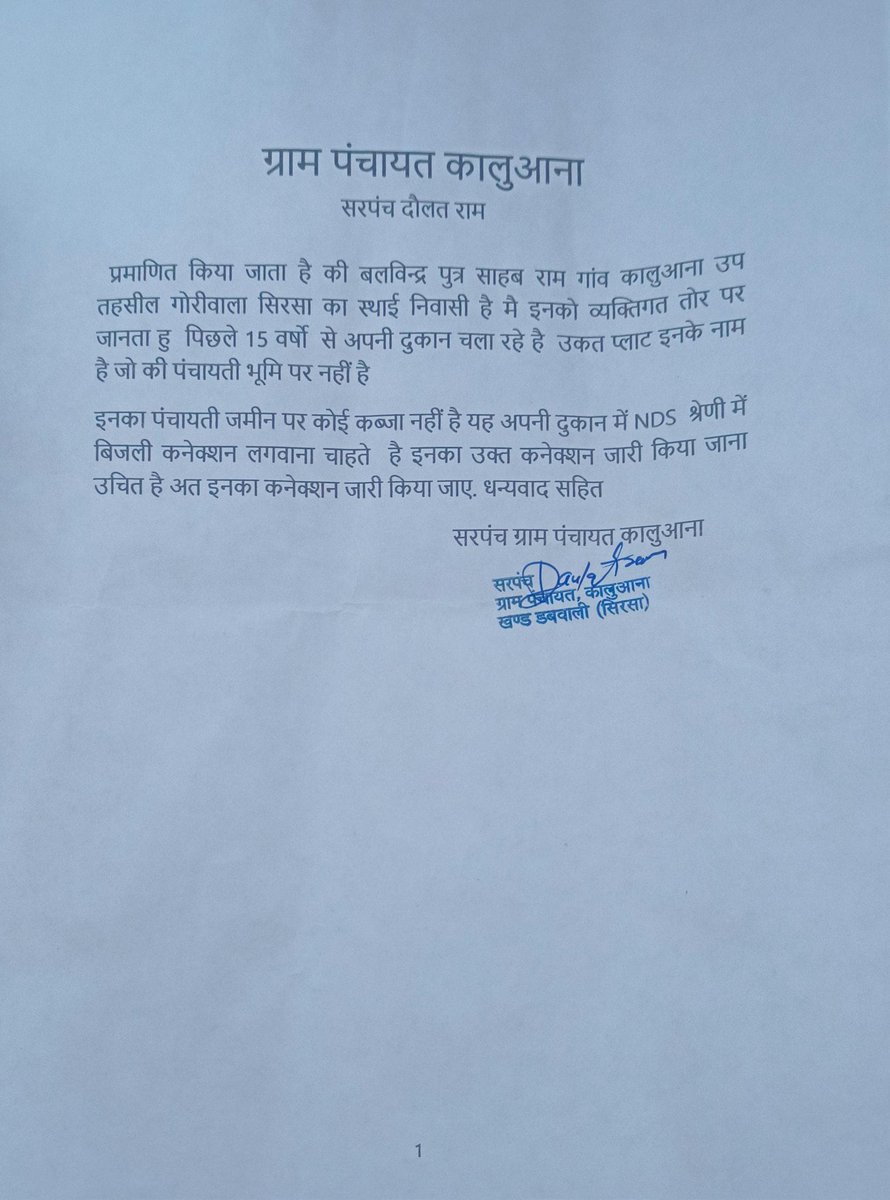 ग्राम पंचायत कालुआना
सरपंच दौलत राम
प्रमाणित किया जाता है की बलविन्द्र पुत्र साहब राम गांव कालुआना उप
तहसील गोरीवाला सिरसा का स्थाई निवासी है मै इनको व्यक्तिगत तोर पर
जानता हु पिछले 15 वर्षो से अपनी दुकान चला रहे है उकत प्लाट इनके नाम
है जो की पंचायती भूमि पर नहीं है
इनका पंचायती जमीन पर कोई कब्जा नहीं है यह अपनी दुकान में NDS श्रेणी में
बिजली कनेक्शन लगवाना चाहते है इनका उक्त कनेक्शन जारी किया जाना
उचित है अत इनका कनेक्शन जारी किया जाए. धन्यवाद सहित
सरपंच ग्राम पंचायत कालुआना
सरपंच
ग्राम पंचायत, कालुआना
खण्ड डबवाली (सिरसा)
1